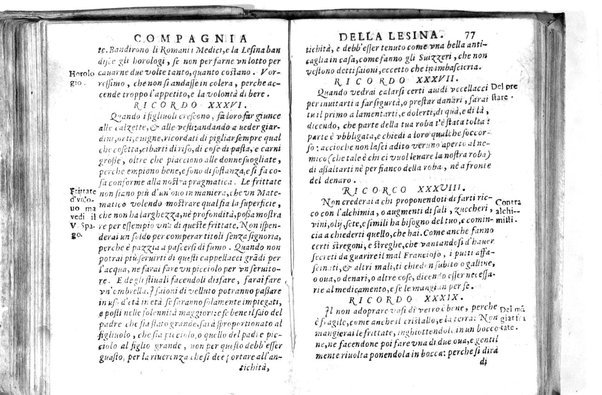 COMPAGNIA
te. Bandirono li Romani i Medici, e la Lesina ban
disce gli horologi, se non per farne vn lotto per
cauarne due volte tanto, quanto costano. Vor-
ressimo, che non si andasse in colera, perche ac-
cende troppo l'appetito, e la volontà di bere.
Horolo
gio.
RICORDO XXXVI.
Quando i figliuoli crescono, sà loro far giunce
alle calzette, & alle vesti, andando a veder giar-
dini, orti, e vigne, ricordati di pigliar sempre qual
che cosetta, cibarti di riso, di cose di pasta, e carni
grosse, oltre che piacciono alle donne suogliate,
perche empiono bene, sono di sostanza, e si fa co
sa conforme alla nostra pragmatica. Le frittate
non siano più d'un'ouo in maniera, che vn Mate-
matico volendo mostrare qual sia superficie,
che non ha larghezza, nè profondità, possa mostra
re per essempio vna di queste frittate. Non ispen-
derai un soldo per comperar titoli senza signoria,
perche è pazzia a pascersi di fumo. Quando non
potrai più seruirti di questi cappellacci grādi per
l'acqua, ne farai fare vn picciolo per vn seruito-
re. E degli stiuali facendoli disfare, farai fare
vn'ombrella. I saioni di velluto potranno passare
in usò d'età in età se saranno solamente impiegati,
e posti nelle solennità maggiori: e se bene il saio del
padre che sia stato grande, sarà sproportionato al
figliuolo, che sia picciolo, o quello del padre è pic
ciolo al figlio grande, non per questo debb'esser
guasto, per la riuerenza che si dee portare all'an-
tichità,
Frittate
d'vn'o-
uo ma
vedi il
V spa-
go.
DELLA LESINA. 77
tichità, e debb'esser tenuto come vna bella anti-
caglia in casa, come fanno gli Suizzeri, che non
vestono de tai saioni, eccetto che in imbascieria.
RICORDO XXXVII.
Quando vedrai calarsi certi auidi vccellacci
per inuitarti a far sigurtà, o prestar danari, sarai
tu il primo a lamentarti, e dolerti, di quà, e di là,
dicendo, che parte della tua roba t'è stata tolta:
parte è vbligata, e chiedi a loro qualche soccor-
so; acciocche non lasci adito verano aperto al ne-
mico (che tale è chi ci vuol leuare la nostra roba)
di assaltarti nè per fianco della roba, nè a fronte
del denaro.
Del pre
stare.
RICORCO XXXVIII.
Non crederai a chi proponendoti di farti ric-
co con l'alchimia, o augmenti di sali, zuccheri,
vini, olij, sete, e simili ha bisogno del tuo, e comin-
cia a chiederti quello, che hai. Come anche fanno
certi stregoni, e streghe, che vantandosi d'hauer
secreti da guarire il mal Francioso, i putti affa-
scinati, & altri mali, ti chiedon subito o galline,
o oua, o denari, o altre cose, dicendo esser necessa-
rie al medicamento, e se le mangian per se.
Contra
alchi-
misti.
RICORDO XXXIX.
Il non adoprare vasi di vetro è bene, perche
è fragile, come anche il cristallo, e la terra: Non
mangiar le frittate, inghiottendole in un boccone.
ne, ne facendone poi fare vna di due oua, e gentil
mente riuolta ponendola in bocca: perche si dirà
di
Del mā
giar li
ate.